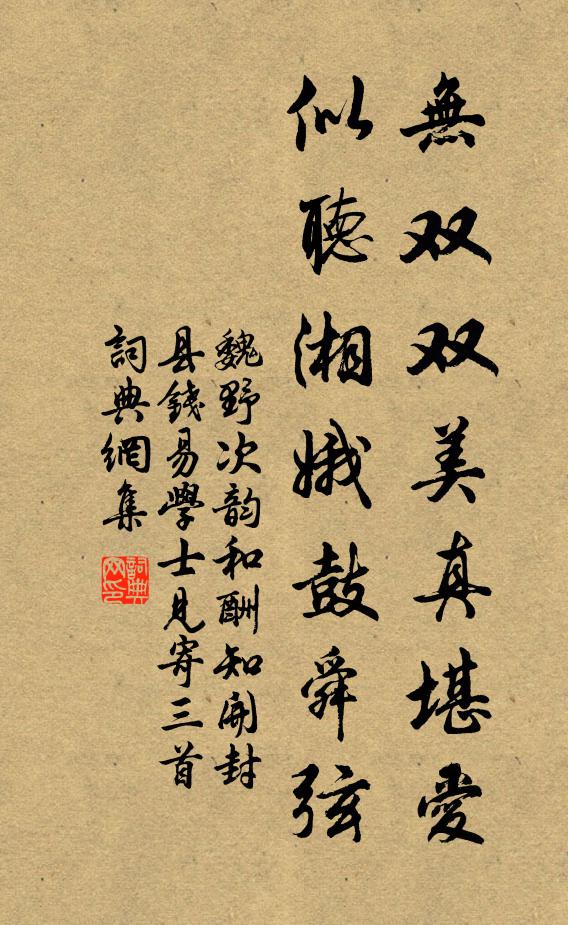 無双双美真堪愛
似聽湘娥鼓舜弦
魏野次韵和酬知開封
县錢易學士見寄三首
詞典網集
詞典网印